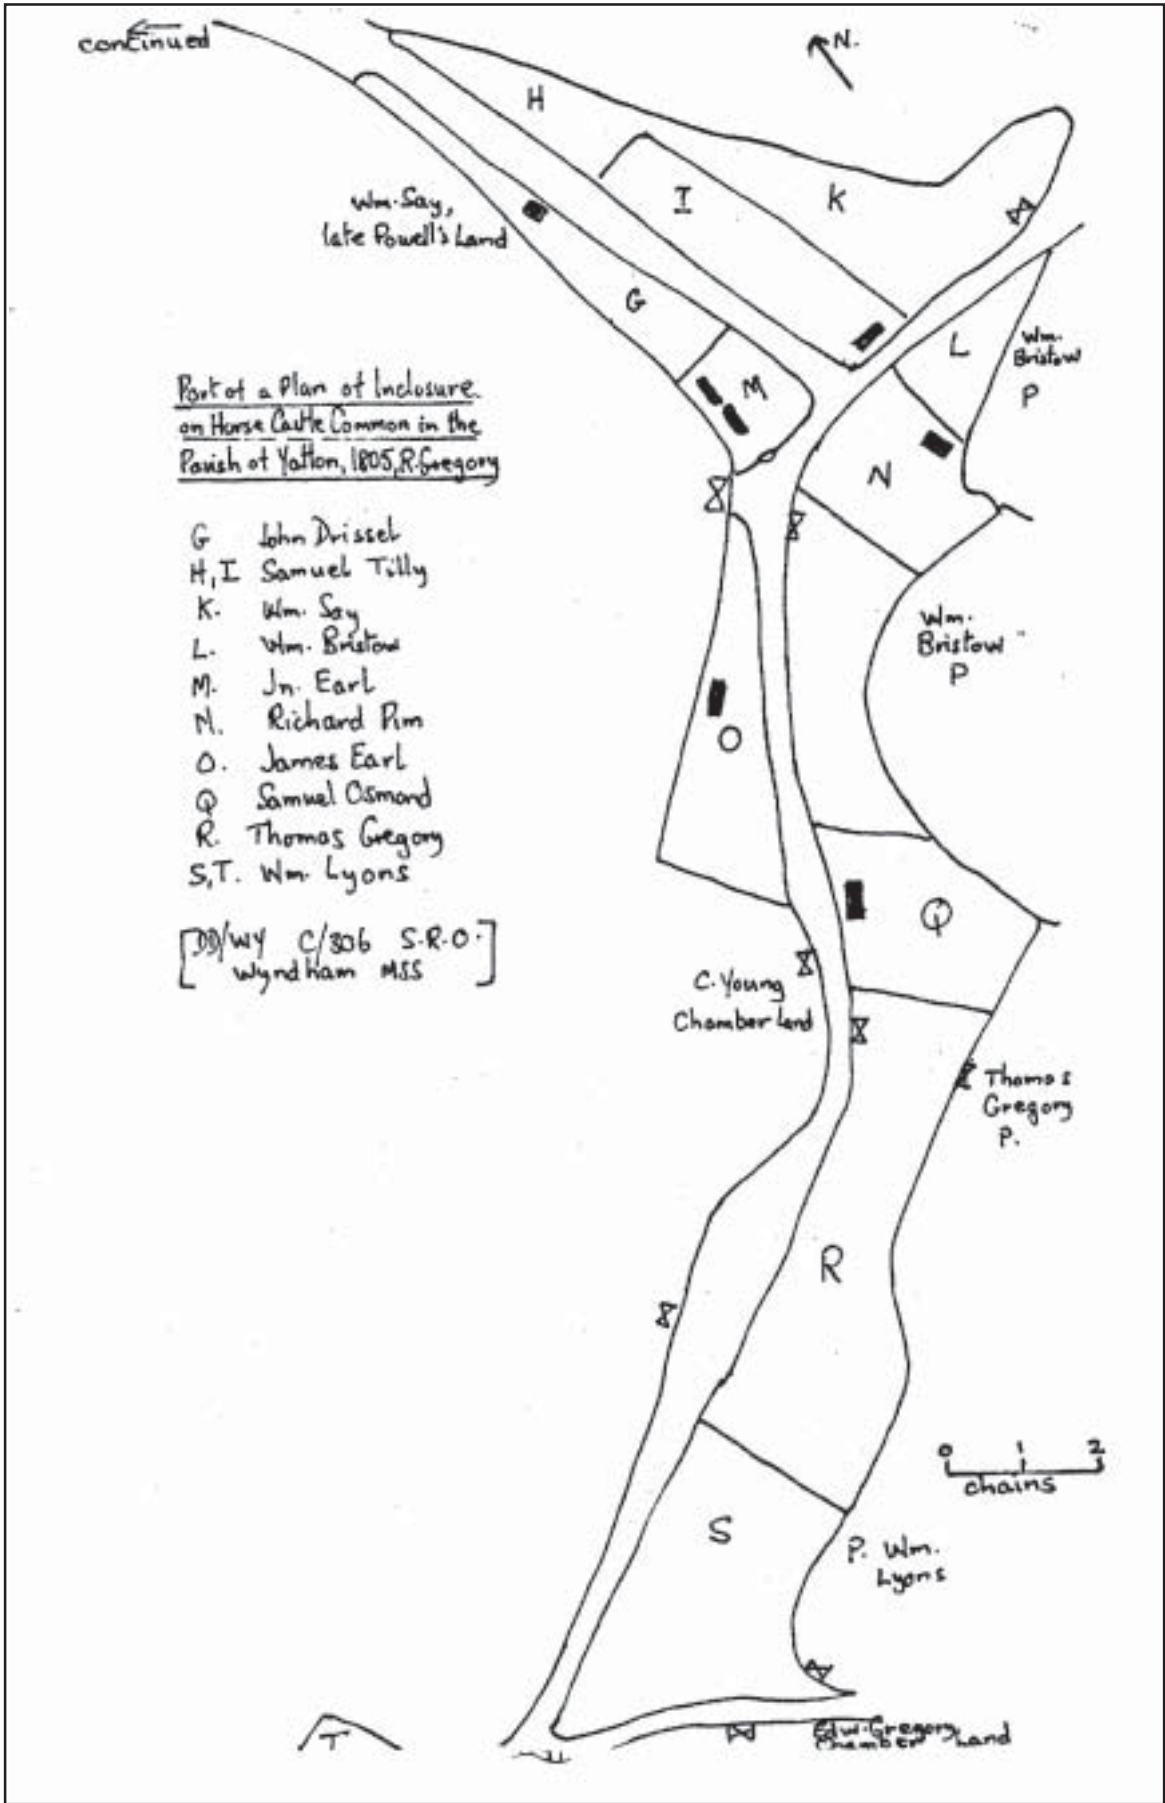 continued
N.
H
I
K
Wm. Say,
late Powell's Land
G
L
Wm.
Bristow
P
M
N
Part of a Plan of Inclosure
on Horse Castle Common in the
Parish of Yatton, 1805, R. Gregory
G John Drissel
H, I Samuel Tilly
K. Wm. Say
L. Wm. Bristow
M. Jn. Earl
N. Richard Pim
O. James Earl
Q Samuel Osmond
R. Thomas Gregory
S, T. Wm. Lyons
[DD/WY C/306 S.R.O.
Wyndham MSS]
Wm.
Bristow
P
O
Q
C. Young
Chamber Land
Thomas
Gregory
P.
R
0 1 2
chains
S
P. Wm.
Lyons
T
Edw. Gregory
Chamber Land